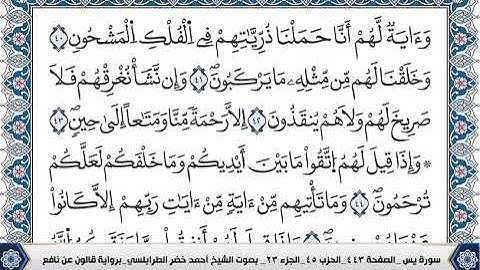 وَءَايَةٌ لَّهُمْ أَنَّا حَمَلْنَا ذُرِّيَّٰتِهِمْ فِي اِ۬لْفُلْكِ اِ۬لْمَشْحُونِ ٤٠
وَخَلَقْنَا لَهُم مِّن مِّثْلِهِۦ مَا يَرْكَبُونَ ٤١ وَإِن نَّشَأْ نُغْرِقْهُمْ فَلَا
صَرِيخَ لَهُمْ وَلَا هُمْ يُنقَذُونَ ٤٢ إِلَّا رَحْمَةً مِّنَّا وَمَتَٰعًا إِلَىٰ حِينٍ ٤٣
* وَإِذَا قِيلَ لَهُمُ اُ۪تَّقُواْ مَا بَيْنَ أَيْدِيكُمْ وَمَا خَلْفَكُمْ لَعَلَّكُمْ
تُرْحَمُونَ ٤٤ وَمَا تَأْتِيهِم مِّنْ ءَايَةٍ مِّنْ ءَايَٰتِ رَبِّهِمْ إِلَّا كَانُواْ
سورة يس _ الصفحة ٤٤٣_ الحزب ٤٥_ الجزء ٢٣ _ بصوت الشيخ أحمد خضر الطرابلسي_ برواية قالون عن نافع